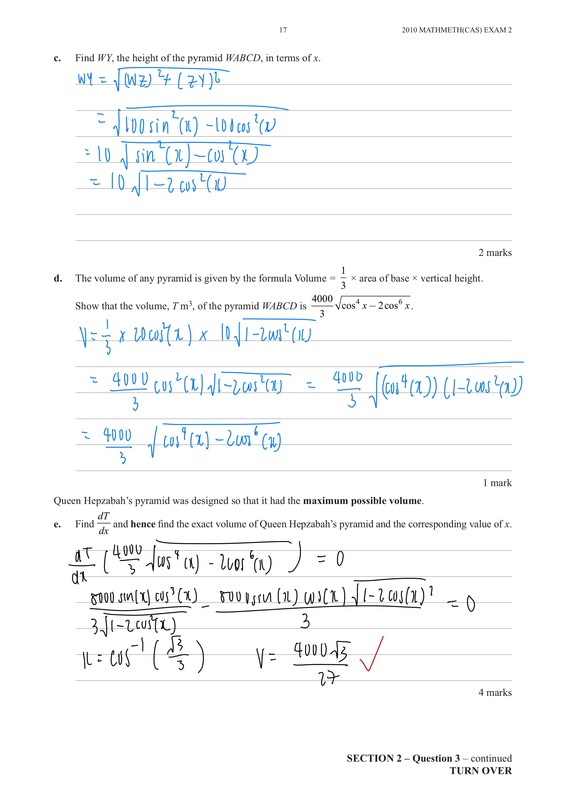 17
2010 MATHMETH(CAS) EXAM 2
c. Find WY, the height of the pyramid WABCD, in terms of x.
WY = √((WZ)² + (ZY)²)
= √(100sin²(x) − 100cos²(x))
= 10 √(sin²(x) − cos²(x))
= 10 √(1 − 2cos²(x))
2 marks
d. The volume of any pyramid is given by the formula Volume = 1/3 × area of base × vertical height.
Show that the volume, T m³, of the pyramid WABCD is 4000/3 √(cos⁴ x − 2cos⁶ x).
V = 1/3 × 20cos²(x) × 10√(1 − 2cos²(x))
= 4000/3 cos²(x) √(1 − 2cos²(x)) = 4000/3 √((cos⁴(x))(1 − 2cos²(x)))
= 4000/3 √(cos⁴(x) − 2cos⁶(x))
1 mark
Queen Hepzabah's pyramid was designed so that it had the maximum possible volume.
e. Find dT/dx and hence find the exact volume of Queen Hepzabah's pyramid and the corresponding value of x.
dT/dx (4000/3 √(cos⁴(x) − 2cos⁶(x))) = 0
8000 sin(x) cos³(x) / 3√(1 − 2cos²(x)) − 8000sin(x) cos(x) √(1 − 2cos(x)²) / 3 = 0
x = cos⁻¹(√3/3) V = 4000√3/27 ✓
4 marks
SECTION 2 – Question 3 – continued
TURN OVER